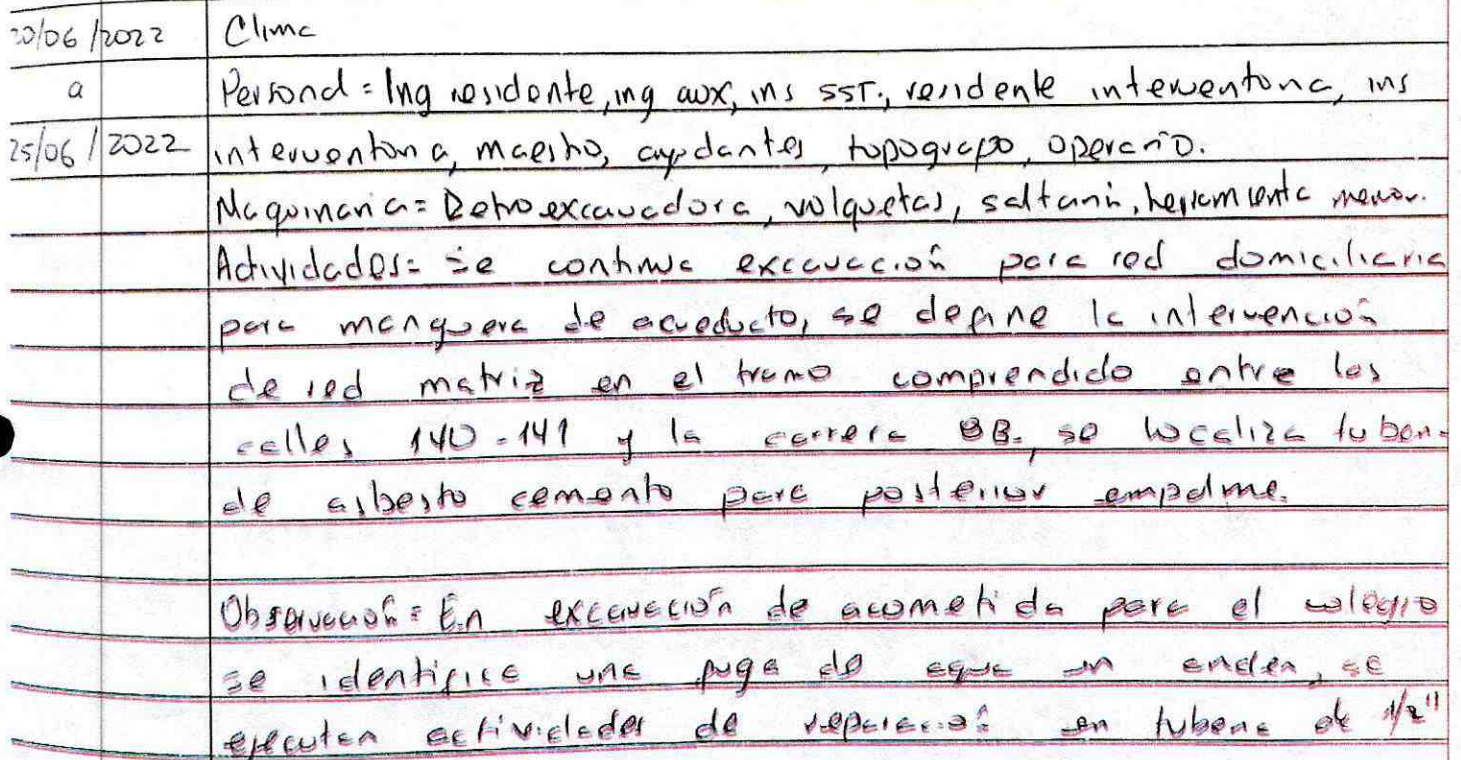 20/06/2022 Clima
a Personal = Ing residente, ing aux, ins SST., residente interventoria, ins
25/06/2022 interventoria, maestro, ayudantes, topografo, operario.
Maquinaria = Retroexcavadora, volquetas, saltarin, herramienta menor.
Actividades = Se continua excavación para red domiciliaria
para manguera de acueducto, se define la intervención
de red matriz en el tramo comprendido entre las
calles 140-141 y la carrera 8B. se localiza tuberi-
de asbesto cemento para posterior empalme.
Observación = En excavación de acometida para el colegio
se identifica una fuga de agua en anden, se
ejecutan actividades de reparación en tuberia de 1/2"